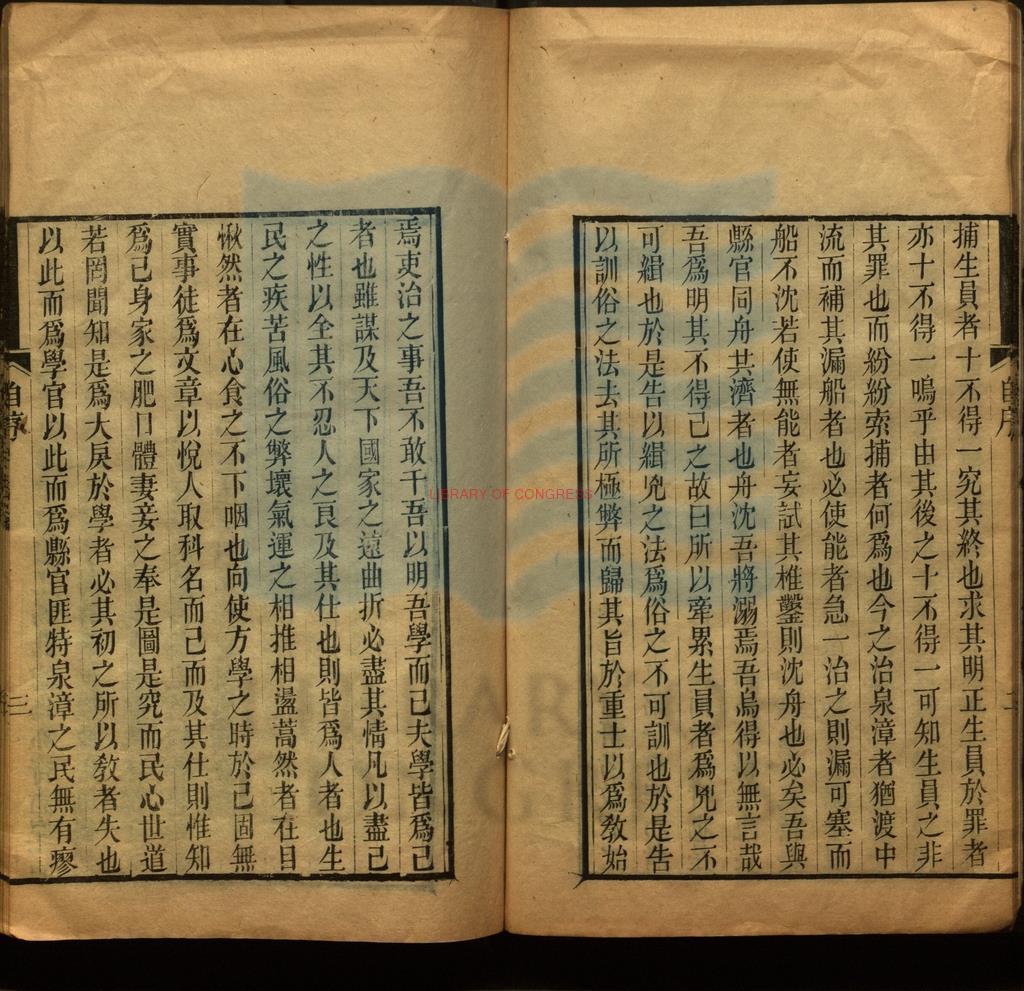 捕生員者十不得一究其終也求其明正生員於罪者
亦十不得一嗚乎由其後之十不得一可知生員之非
其罪也而紛紛索捕者何爲也今之治泉漳者猶渡中
流而補其漏船者也必使能者急一治之則漏可塞而
船不沈若使無能者妄試其椎鑿則沈舟也必矣吾與
縣官同舟共濟者也舟沈吾將溺焉吾烏得以無言哉
吾爲明其不得已之故曰所以牽累生員者爲兇之不
可緝也於是告以緝兇之法爲俗之不可訓也於是告
以訓俗之法去其所極弊而歸其旨於重士以爲敎始
自序
二
焉吏治之事吾不敢干吾以明吾學而已夫學皆爲己
者也雖謀及天下國家之遠曲折必盡其情凡以盡己
之性以全其不忍人之良及其仕也則皆爲人者也生
民之疾苦風俗之弊壞氣運之相推相盪蒿然者在目
愀然者在心食之不下咽也向使方學之時於己固無
實事徒爲文章以悅人取科名而已而及其仕則惟知
爲己身家之肥口體妻妾之奉是圖是究而民心世道
若罔聞知是爲大戾於學者必其初之所以敎者失也
以此而爲學官以此而爲縣官匪特泉漳之民無有瘳
自序
三
LIBRARY OF CONGRESS